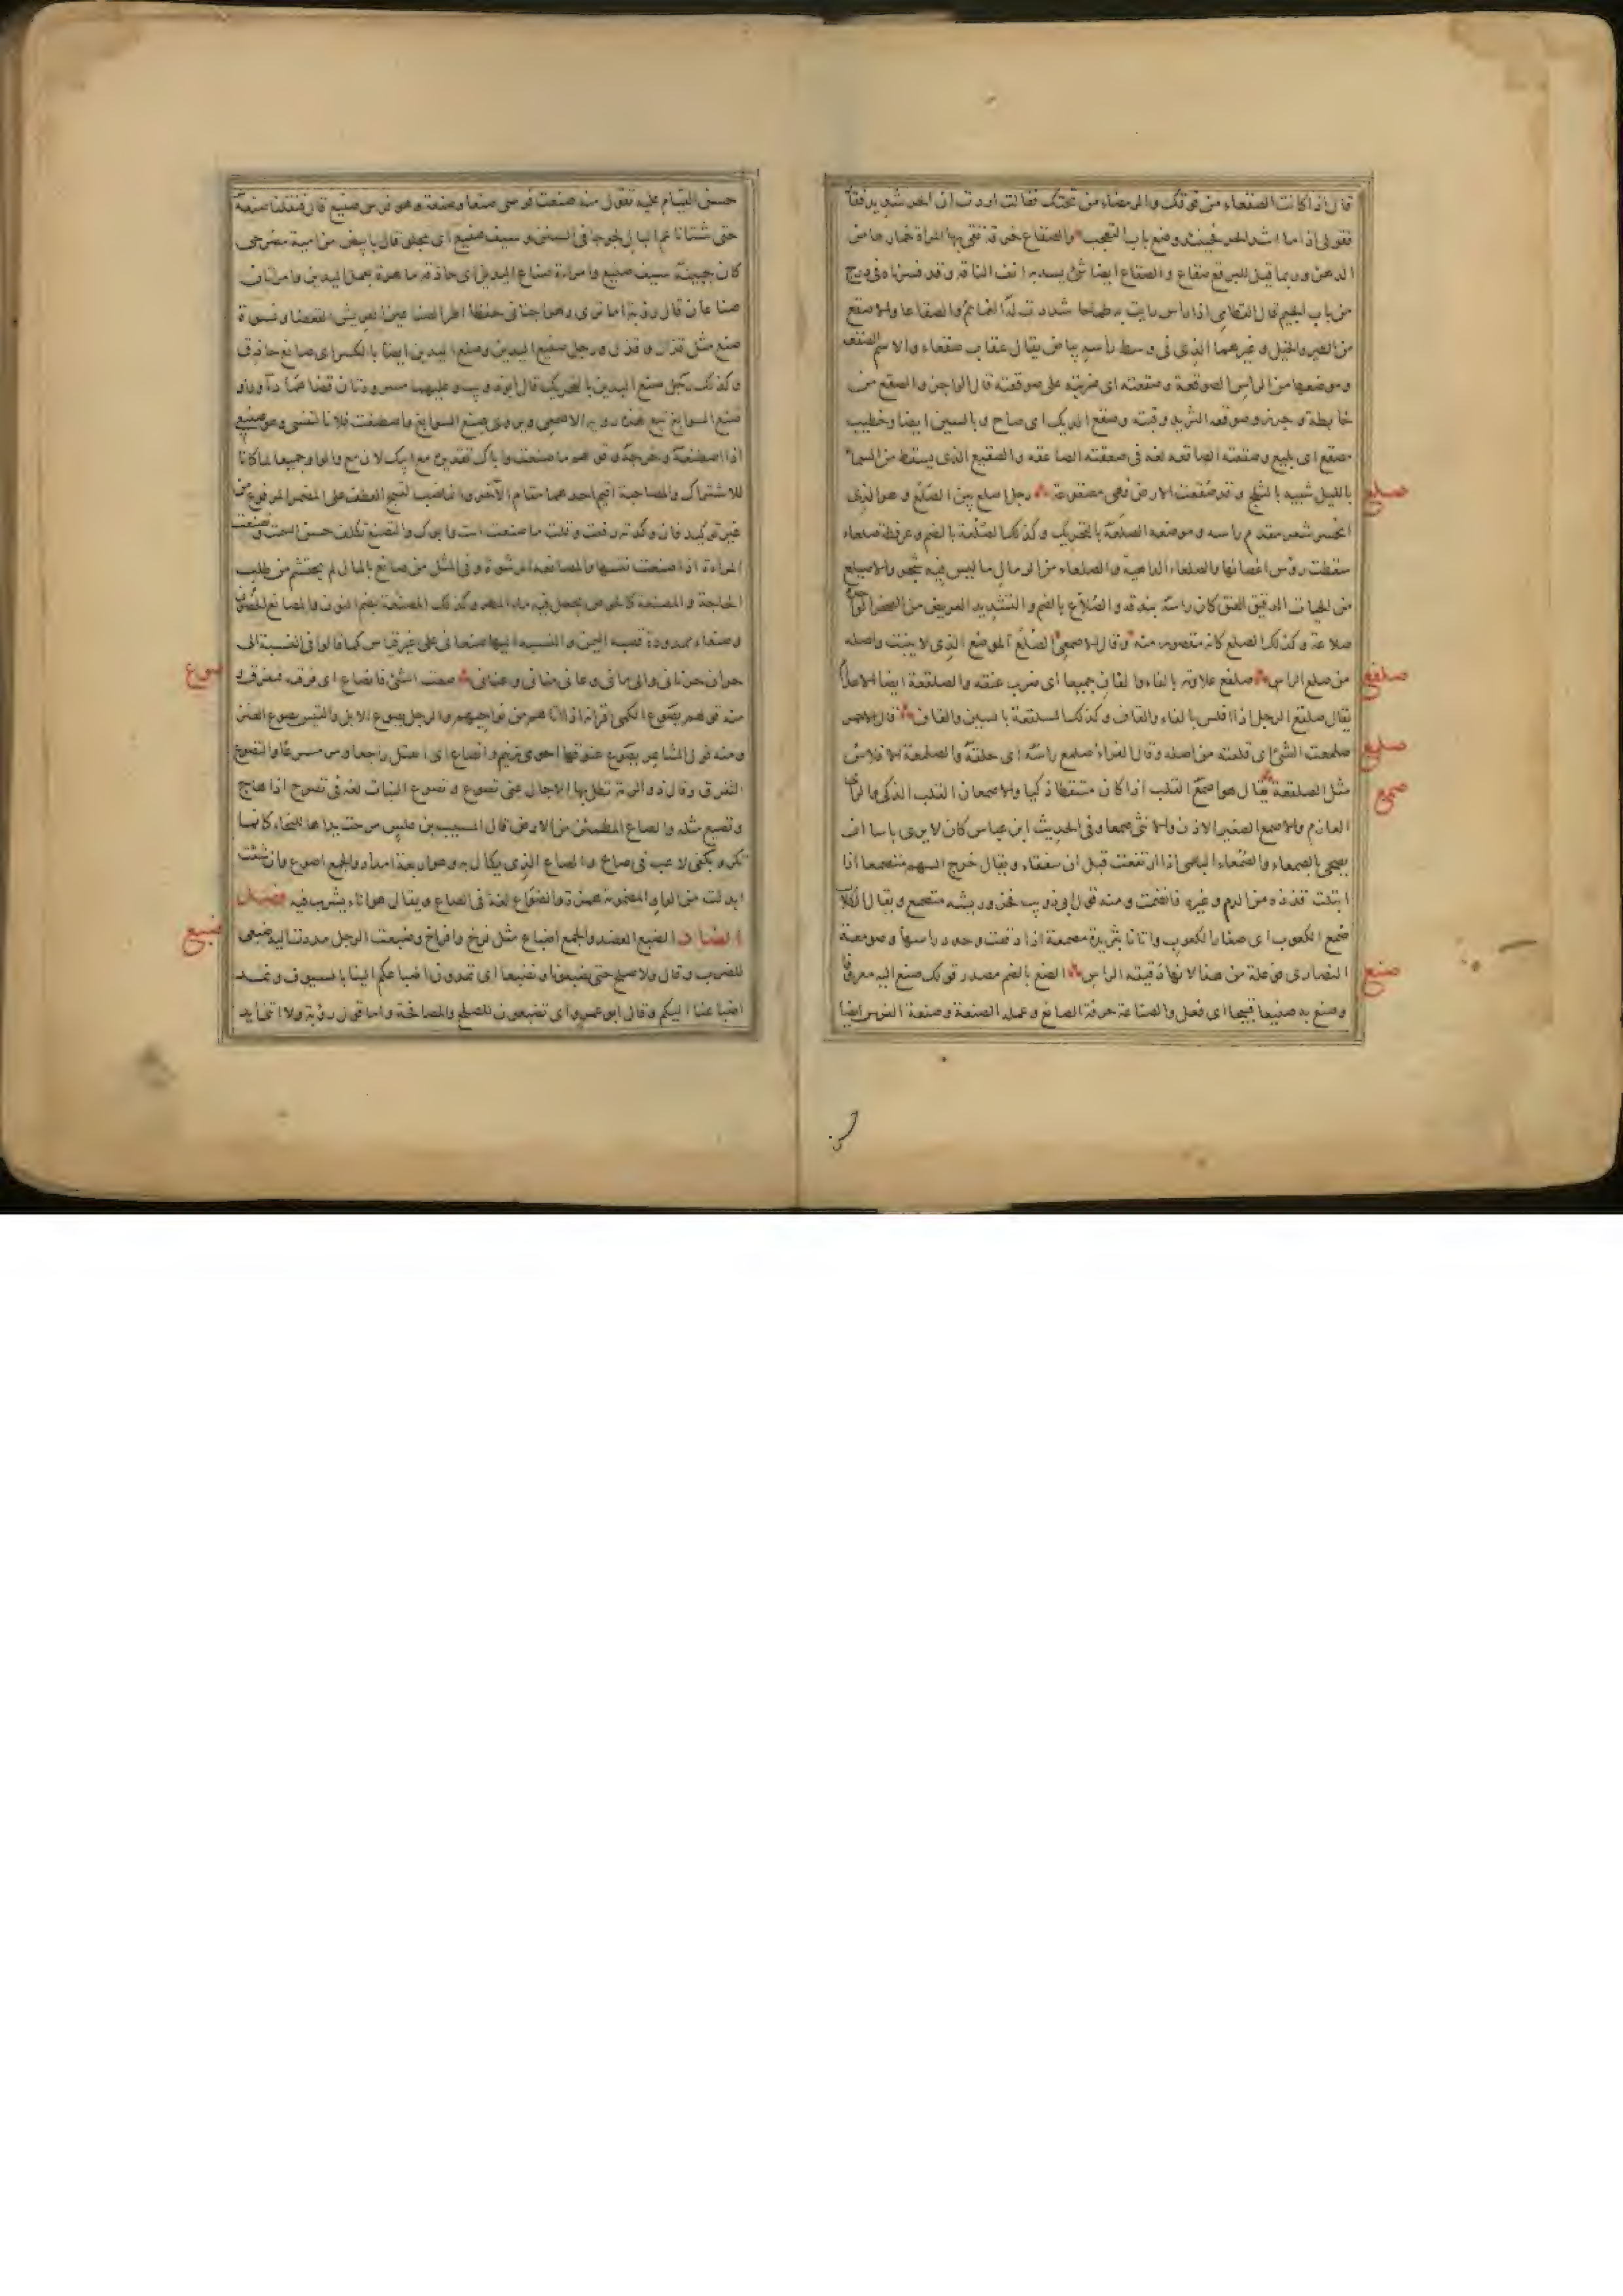 قال اذا كانت الصقعاء من فوقك والرمضاء من تحتك فقالت اردت ان الحر شديد فقال
فقولى اذا ما اشد الحر فحينئذ وضع باب التعجب والصقاع خرقة تقى بها المراة خمارها من
الدهن وربما قيل للبرقع صقاع والصقاع ايضا شئ يشد به انف الناقة وقد فسرناه فى درج
من باب الجيم قال القطامى اذا راس رايت به طماحا شددت له الغمائم والصقاعا والاصقع
من الطير والخيل وغيرهما الذى فى وسط راسه بياض يقال عقاب صقعاء والاسم الصقعة
وموضعها من الراس الصوقعة وصقعته اى ضربته على صوقعته قال الراجز والصقع من
خابطة وجرز وصوقعة الثريد وقبته وصقع الديك اى صاح وبالسين ايضا وخطيب
مصقع اى بليغ وصقعته الصاقعة لغة فى صعقته الصاعقة والصقيع الذى يسقط من السماء
صلع
بالليل شبيه بالثلج وقد صقعت الارض فهى مصقوعة رجل اصلع بين الصلع وهو الذى
انحسر شعر مقدم راسه وموضعه الصلعة بالتحريك وكذلك الصلعة بالضم وعرفطة صلعاء
سقطت رؤس اغصانها والصلعاء الداهية والصلعاء من الرمال ما ليس فيه شجر والاصيلع
من الحيات الدقيق العنق كان راسه بندقة والصلاع بالضم والتشديد العريض من الصخر الواحدة
صلاعة وكذلك الصلع كانه مقصور منه وقال الاصمعى الصلع الموضع الذى لا ينبت واصله
صلفع
من صلع الراس صلفع علاوته بالفاء والقاف جميعا اى ضرب عنقه والصلقعة ايضا الاعدام
يقال صلفع الرجل اذا افلس بالفاء والقاف وكذلك السلقعة بالسين والقاف قال الاحمر
صلمع
صلمعت الشئ اى قلعته من اصله وقال الفراء صلمع راسه اى حلقه والصلمعة الافلاس
صمع
مثل الصلقعة يقال هو اصمع القلب اذا كان متيقظا ذكيا والاصمعان القلب الذكى والراى
العازم والاصمع الصغير الاذن والانثى صمعا وفى الحديث ابن عباس كان لا يرى باسا ان
يضحى بالصمعاء والصمعاء البهمى اذا ارتفعت قبل ان تتفقاء ويقال خرج السهم متصمعا اذا
ابتلت قذذه من الدم وغيره فانضمت ومنه قول ابى ذويب فخر وريشه متصمع ويقال للكلاب
صمع الكعوب اى صغار الكعوب واتانا بثريدة مصمعة اذا دققت وحدد راسها وصومعة
صنع
النصارى فوعلة من هذا لانها دقيقة الراس الصنع بالضم مصدر قولك صنع اليه معروفا
وصنع به صنيعا قبيحا اى فعل والصناعة حرفة الصانع وعمله الصنعة وصنعة الفرس ايضا
حسن القيام عليه تقول منه صنعت فرسى صنعا وصنعة وهو فرس صنيع قال فنقلنا صنعه
حتى شتا ناعم البال لجوجا فى السنن وسيف صنيع اى مجلو قال بابيض من امية مضرحى
كان جبينه سيف صنيع وامراءة صناع اليدين اى حاذقة ماهرة بعمل اليدين وامراتان
صناعان قال رؤبة اما ترى دهرا حنانى حفظا اطر الصناعين العريش القعضا ونسوة
صنع مثل قذال وقذل ورجل صنيع اليدين وصنع اليدين ايضا بالكسر اى صانع حاذق
وكذلك رجل صنع اليدين بالتحريك قال ابو ذويب وعليهما مسرودتان قضاهما داوود او
صنع السوابغ تبع هذه رواية الاصمعى ويروى صنع السوابغ واصطنعت فلانا لنفسى وهو صنيعى
اذا اصطنعته وخرجته وقولهم ما صنعت واباك تقديره مع ابيك لان مع والواو جميعا لما كانا
للاشتراك والمصاحبة اقيم احدهما مقام الآخر وانما نصب لقبح العطف على المضمر المرفوع من
غير توكيد فان وكدته رفعت وقلت ما صنعت انت وابوك والتصنع تكلف حسن السمت وتصنعت
المراءة اذا صنعت نفسها والمصانعة الرشوة وفى المثل من صانع بالمال لم يحتشم من طلب
الحاجة والمصنعة كالحوض يجمع فيه ماء المطر وكذلك المصنعة بضم النون والمصانع الحصون
وصنعاء ممدودة قصبة اليمن والنسبة اليها صنعانى على غير قياس كما قالوا فى النسبة الى
صوع
حران حرنانى والى مانى وعانى منانى وعنانى صعت الشئ فانصاع اى فرقته فتفرق و
منه قولهم يصوع الكمى اقرانه اذا اتاهم من نواحيهم والرجل يصوع الابل والتيس يصوع المعز
ومنه قول الشاعر يصوع عنوقها احوى زنيم وانصاع اى انفتل راجعا ومر مسرعا والتصوع
التفرق وقال ذو الرمة تظل بها الآجال عنى تصوع وتصوع النبات لغة فى تصوح اذا هاج
وتصيع مثله والصاع المطمئن من الارض قال المسيب بن علس مرحت يداها للنجاء كانما
تكرو بكفى لاعب فى صاع والصاع الذى يكال به وهو اربعة امداد والجمع اصوع وان شئت
ابدلت من الواو المضمومة همزة والصواع لغة فى الصاع ويقال هو اناء يشرب فيه فصل
ضبع
الضاد الضبع العضد والجمع اضباع مثل فرخ وافراخ وضبعت الرجل مددت اليه ضبعى
للضرب وقال ولا صلح حتى تضبعونا ونضبعا اى تمدون اضباعكم الينا بالسيوف ونمد
اضباعنا اليكم وقال ابو عمرو اى تضبعون للصلح والمصافحة واما قول رؤبة ولا اتى ايد